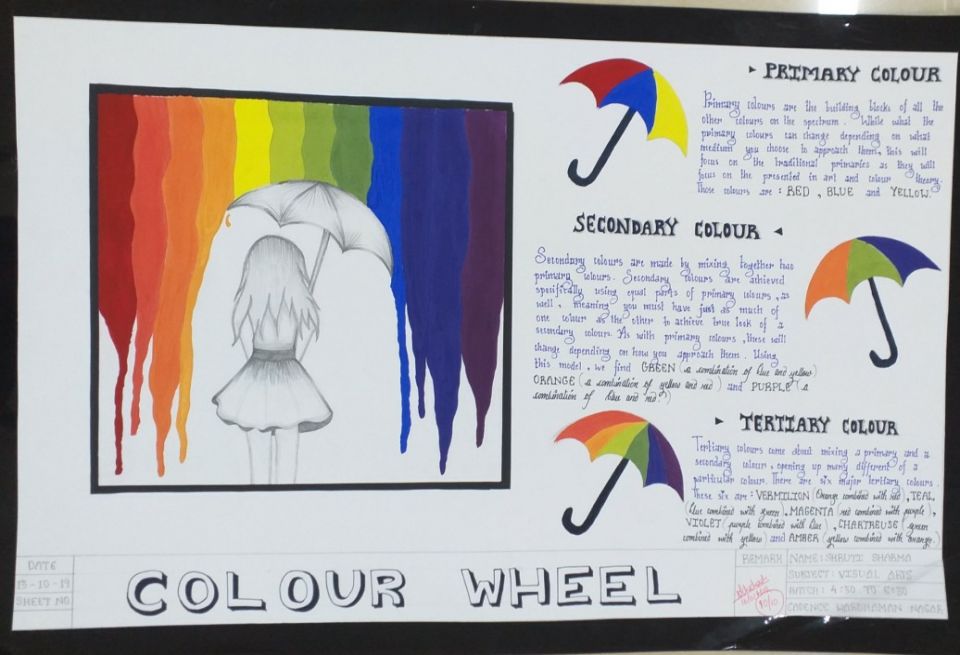 ▸ PRIMARY COLOUR
Primary colours are the building blocks of all the
other colours on the spectrum. While what the
primary colours can change depending on what
medium you choose to approach them, this will
focus on the traditional primaries as they will
focus on the presented in art and colour theory.
Those colours are : RED , BLUE and YELLOW.
SECONDARY COLOUR ◂
Secondary colours are made by mixing together two
primary colours. Secondary colours are achieved
specifically using equal parts of primary colours , as
well , meaning you must have just as much of
one colour as the other to achieve true look of a
secondary colours. As with primary colours , these will
change depending on how you approach them. Using
this model , we find GREEN (a combination of blue and yellow)
ORANGE (a combination of yellow and red) and PURPLE (a
combination of blue and red)
▸ TERTIARY COLOUR
Tertiary colours come about mixing a primary and a
secondary colour , opening up many different of a
particular colour. There are six major tertiary colours.
These six are : VERMILION (Orange combined with red), TEAL
(blue combined with green), MAGENTA (red combined with purple),
VIOLET (purple combined with blue) , CHARTREUSE (green
combined with yellow) and AMBER (yellow combined with orange.)
DATE
15-10-19
SHEET NO.
COLOUR WHEEL
REMARK
10/10
NAME : SHRUTI SHARMA
SUBJECT : VISUAL ARTS
BATCH : 4:30 TO 6:30
CADENCE WARDHAMAN NAGAR